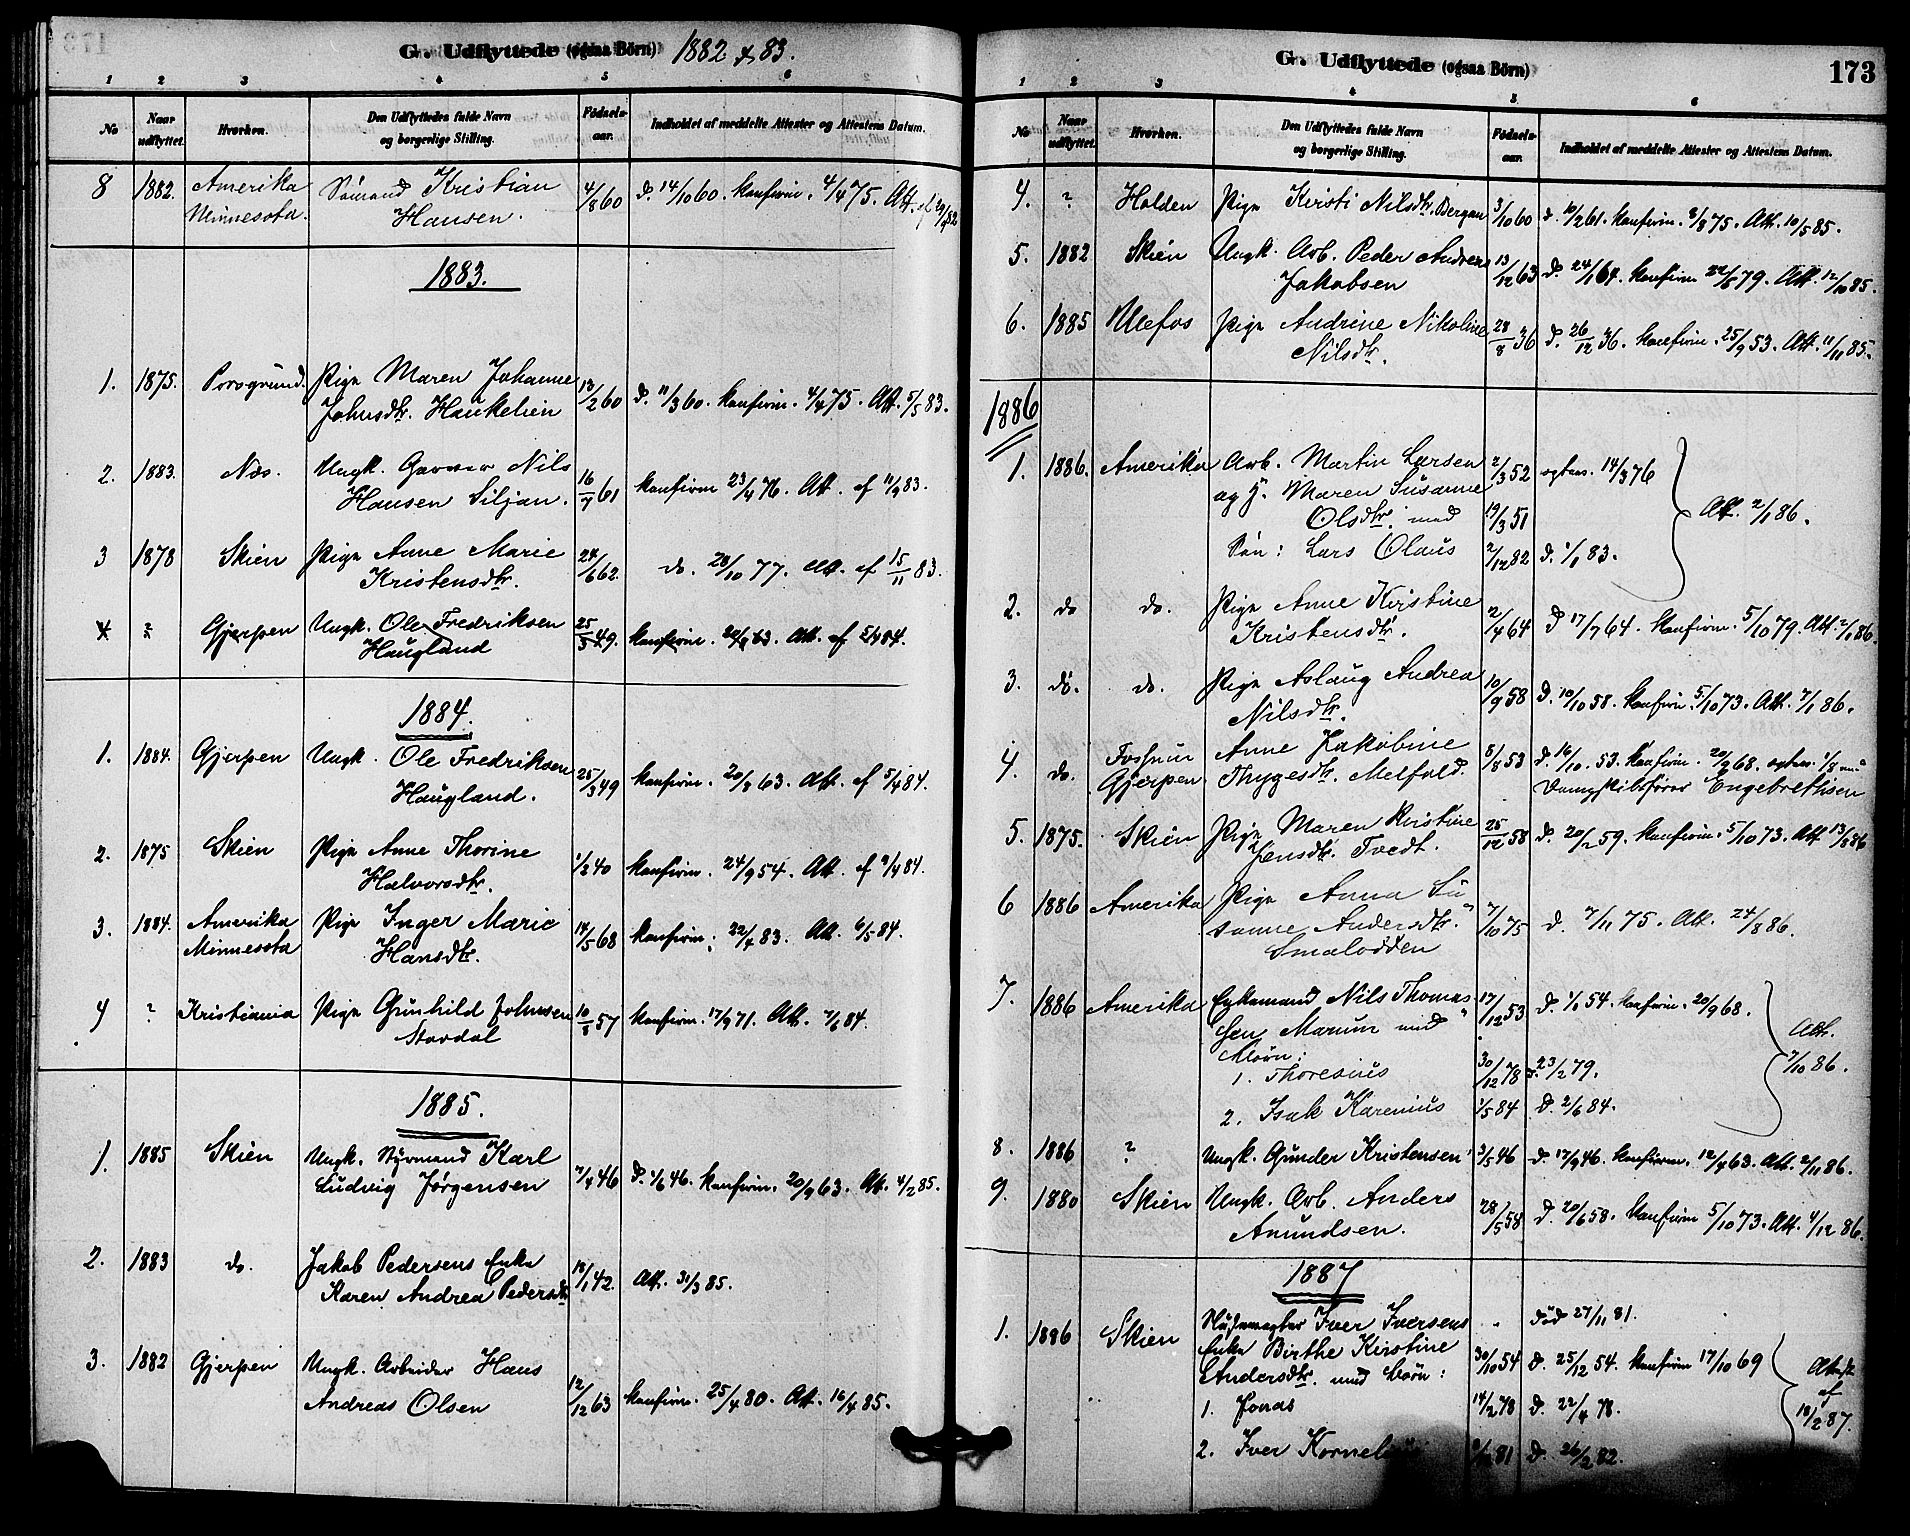 G. Udflyttede (ogsaa Börn) 1882 & 83.
1 2 3 4 5 6
No Naar udflyttet. Hvorhen. Den Udflyttedes fulde Navn og borgerlige Stilling. Födsels-aar. Indholdet af meddelte Attester og Attestens Datum.
8 1882. Amerika Sömand Kristian 4/8 60 d. 14/10 60. konfirm. 4/4 75. Att.
Minnesota. Hansen.
1883.
1. 1875. Porsgrund. Pige Maren Johanne 13/2 60 d. 11/3 60. konfirm. 4/4 75. Att. 5/5 83.
Johnsdtr. Haukelien
2. 1883. Næs. Ungk. Garver Nils 16/7 61 konfirm 23/4 76. Att. af 11/9 83.
Hansen Siljan.
3 1878 Skien Pige Anne Marie 24/6 62. do. 28/10 77. Att. af 15/11 83.
Kristensdtr.
4 ? Gjerpen Ungk. Ole Fredriksen 25/3 49. konfirm. 20/9 63. Att. af 5/4 84.
Haugland
1884.
1. 1884. Gjerpen Ungk. Ole Fredriksen 25/3 49 konfirm. 20/9 63. Att. af 5/4 84.
Haugland.
2. 1875 Skien Pige Anne Thorine 1/2 40 konfirm. 24/9 54. Att. af 9/4 84.
Halvorsdtr.
3. 1884. Amerika Pige Inger Marie 14/5 68 konfirm. 22/4 83. Att. 6/5 84.
Minnesota Hansdtr.
4 ? Kristiania Pige Gunhild Johnsen 10/8 57 konfirm. 17/9 71. Att. 7/6 84.
Stavdal
1885.
1. 1885 Skien Ungk. Styrmand Karl 7/4 46 d. 1/6 46. konfirm. 20/9 63. Att. 4/2 85.
Ludvig Jørgensen
2. 1883 do. Jakob Pedersens Enke 18/1 42. Att. 31/3 85.
Karen Andrea Pedersdtr
3. 1882 Gjerpen Ungk. Arbeider Hans 12/12 63 konfirm. 25/4 80. Att. 16/4 85.
Andreas Olsen
G. Udflyttede (ogsaa Börn) 173
1 2 3 4 5 6
No Naar udflyttet. Hvorhen. Den Udflyttedes fulde Navn og borgerlige Stilling. Födsels-aar. Indholdet af meddelte Attester og Attestens Datum.
4. ? Holden Pige Kirsti Nilsdtr. Bergan 3/10 60 d. 10/2 61. konfirm. 8/8 75. Att. 10/5 85.
5. 1882 Skien Ungk. Arb. Peder Andreas 13/12 63 d. 24/1 64. konfirm 22/6 79. Att. 12/10 85.
Jakobsen
6. 1885 Ulefos Pige Andrine Nikoline 28/8 36 d. 26/12 36. konfirm. 25/9 53. Att. 11/11 85.
Nilsdtr.
1886
1. 1886. Amerika Arb. Martin Larsen 2/3 52 egtev. 14/3 76
og H. Maren Susanne
Olsdtr. med 19/3 51 Att. 2/1 86.
Søn: Lars Olaus 2/12 82 d. 1/1 83.
2. do do. Pige Anne Kirstine 2/4 64 d 17/7 64. konfirm. 5/10 79. Att. 2/1 86.
Kristensdtr.
3. do. do. Pige Aslaug Andrea 10/9 58 d. 10/10 58. konfirm. 5/10 73. Att. 7/1 86.
Nilsdtr.
4. do. Fossum Anne Jakobine 8/8 53 d. 16/10. 53. konfirm. 20/9 68. egtev. 1/8 med
Gjerpen Thygesdtr. Melfald. Dampskibsfører Engebrethsen
5. 1875. Skien Pige Maren Kirstine 25/12 58 d. 20/2 59. konfirm. 5/10 73. Att 13/8 86
Jensdtr. Tvedt.
6 1886 Amerika Pige Anna Su- 7/10 75 d. 7/11 75. Att. 24/8 86.
sanne Andersdtr.
Smalodden
7. 1886 Amerika Lyksmand Nils Thomas- 17/12 53 d. 1/1 54. konfirm. 20/9 68.
sen Marum med Att.
Børn: 7/10 86.
1. Thoresius 30/12 78 d. 23/2 79.
2. Isak Karenius 1/5 84 d. 2/6 84.
8. 1886 ? Ungk. Gunder Kristensen 3/5 46 d. 17/9 46. konfirm. 12/4 63. Att. 2/11 86.
9. 1880 Skien Ungk. Arb. Anders 28/5 58 d. 20/6 58. konfirm 5/10 73. Att. 4/12 86.
Amundsen.
1887
1. 1886 Skien Iver Iversens død 27/11 81.
Enke Birthe Kirstine 30/10 54 d. 25/12 54. konfirm 17/10 69
Andersdtr. med Børn: Attest
1. Jonas 14/2 78 d. 22/4 78. af
18/2 87.
2. Iver 81 d. 26/2 82.